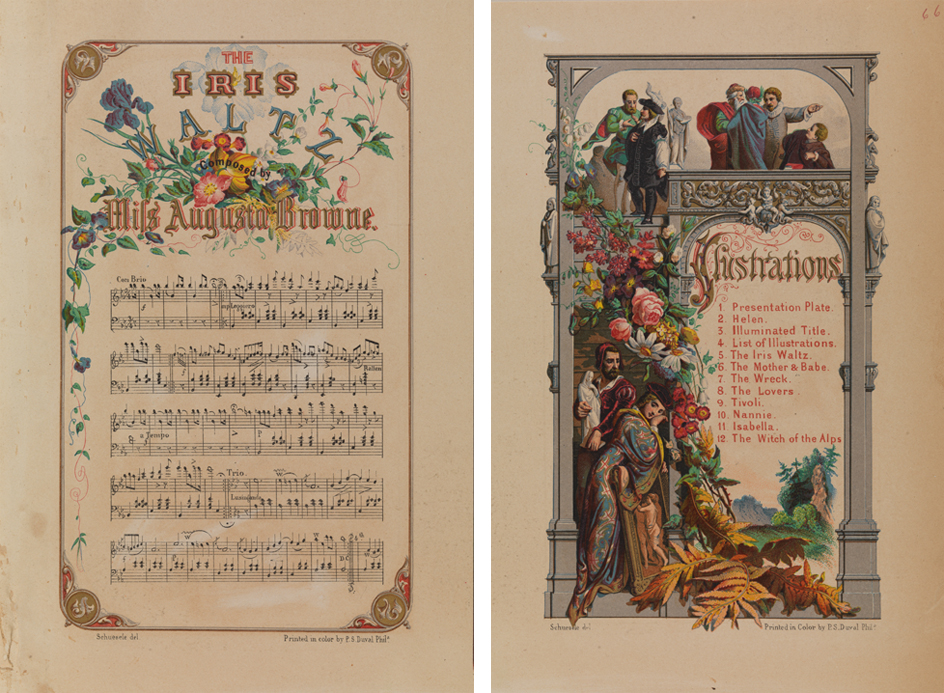 THE
IRIS
WALTZ
Composed by
Miss Augusta Browne.
Con Brio
a Tempo
Trio.
Schussele del.
Printed in color by P. S. Duval Phila.
66
Illustrations
1. Presentation Plate.
2. Helen.
3. Illuminated Title.
4. List of Illustrations.
5. The Iris Waltz.
6. The Mother & Babe.
7. The Wreck.
8. The Lovers.
9. Tivoli.
10. Nannie.
11 Isabella.
12. The Witch of the Alps
Schussele del.
Printed in Color by P. S. Duval Phila.